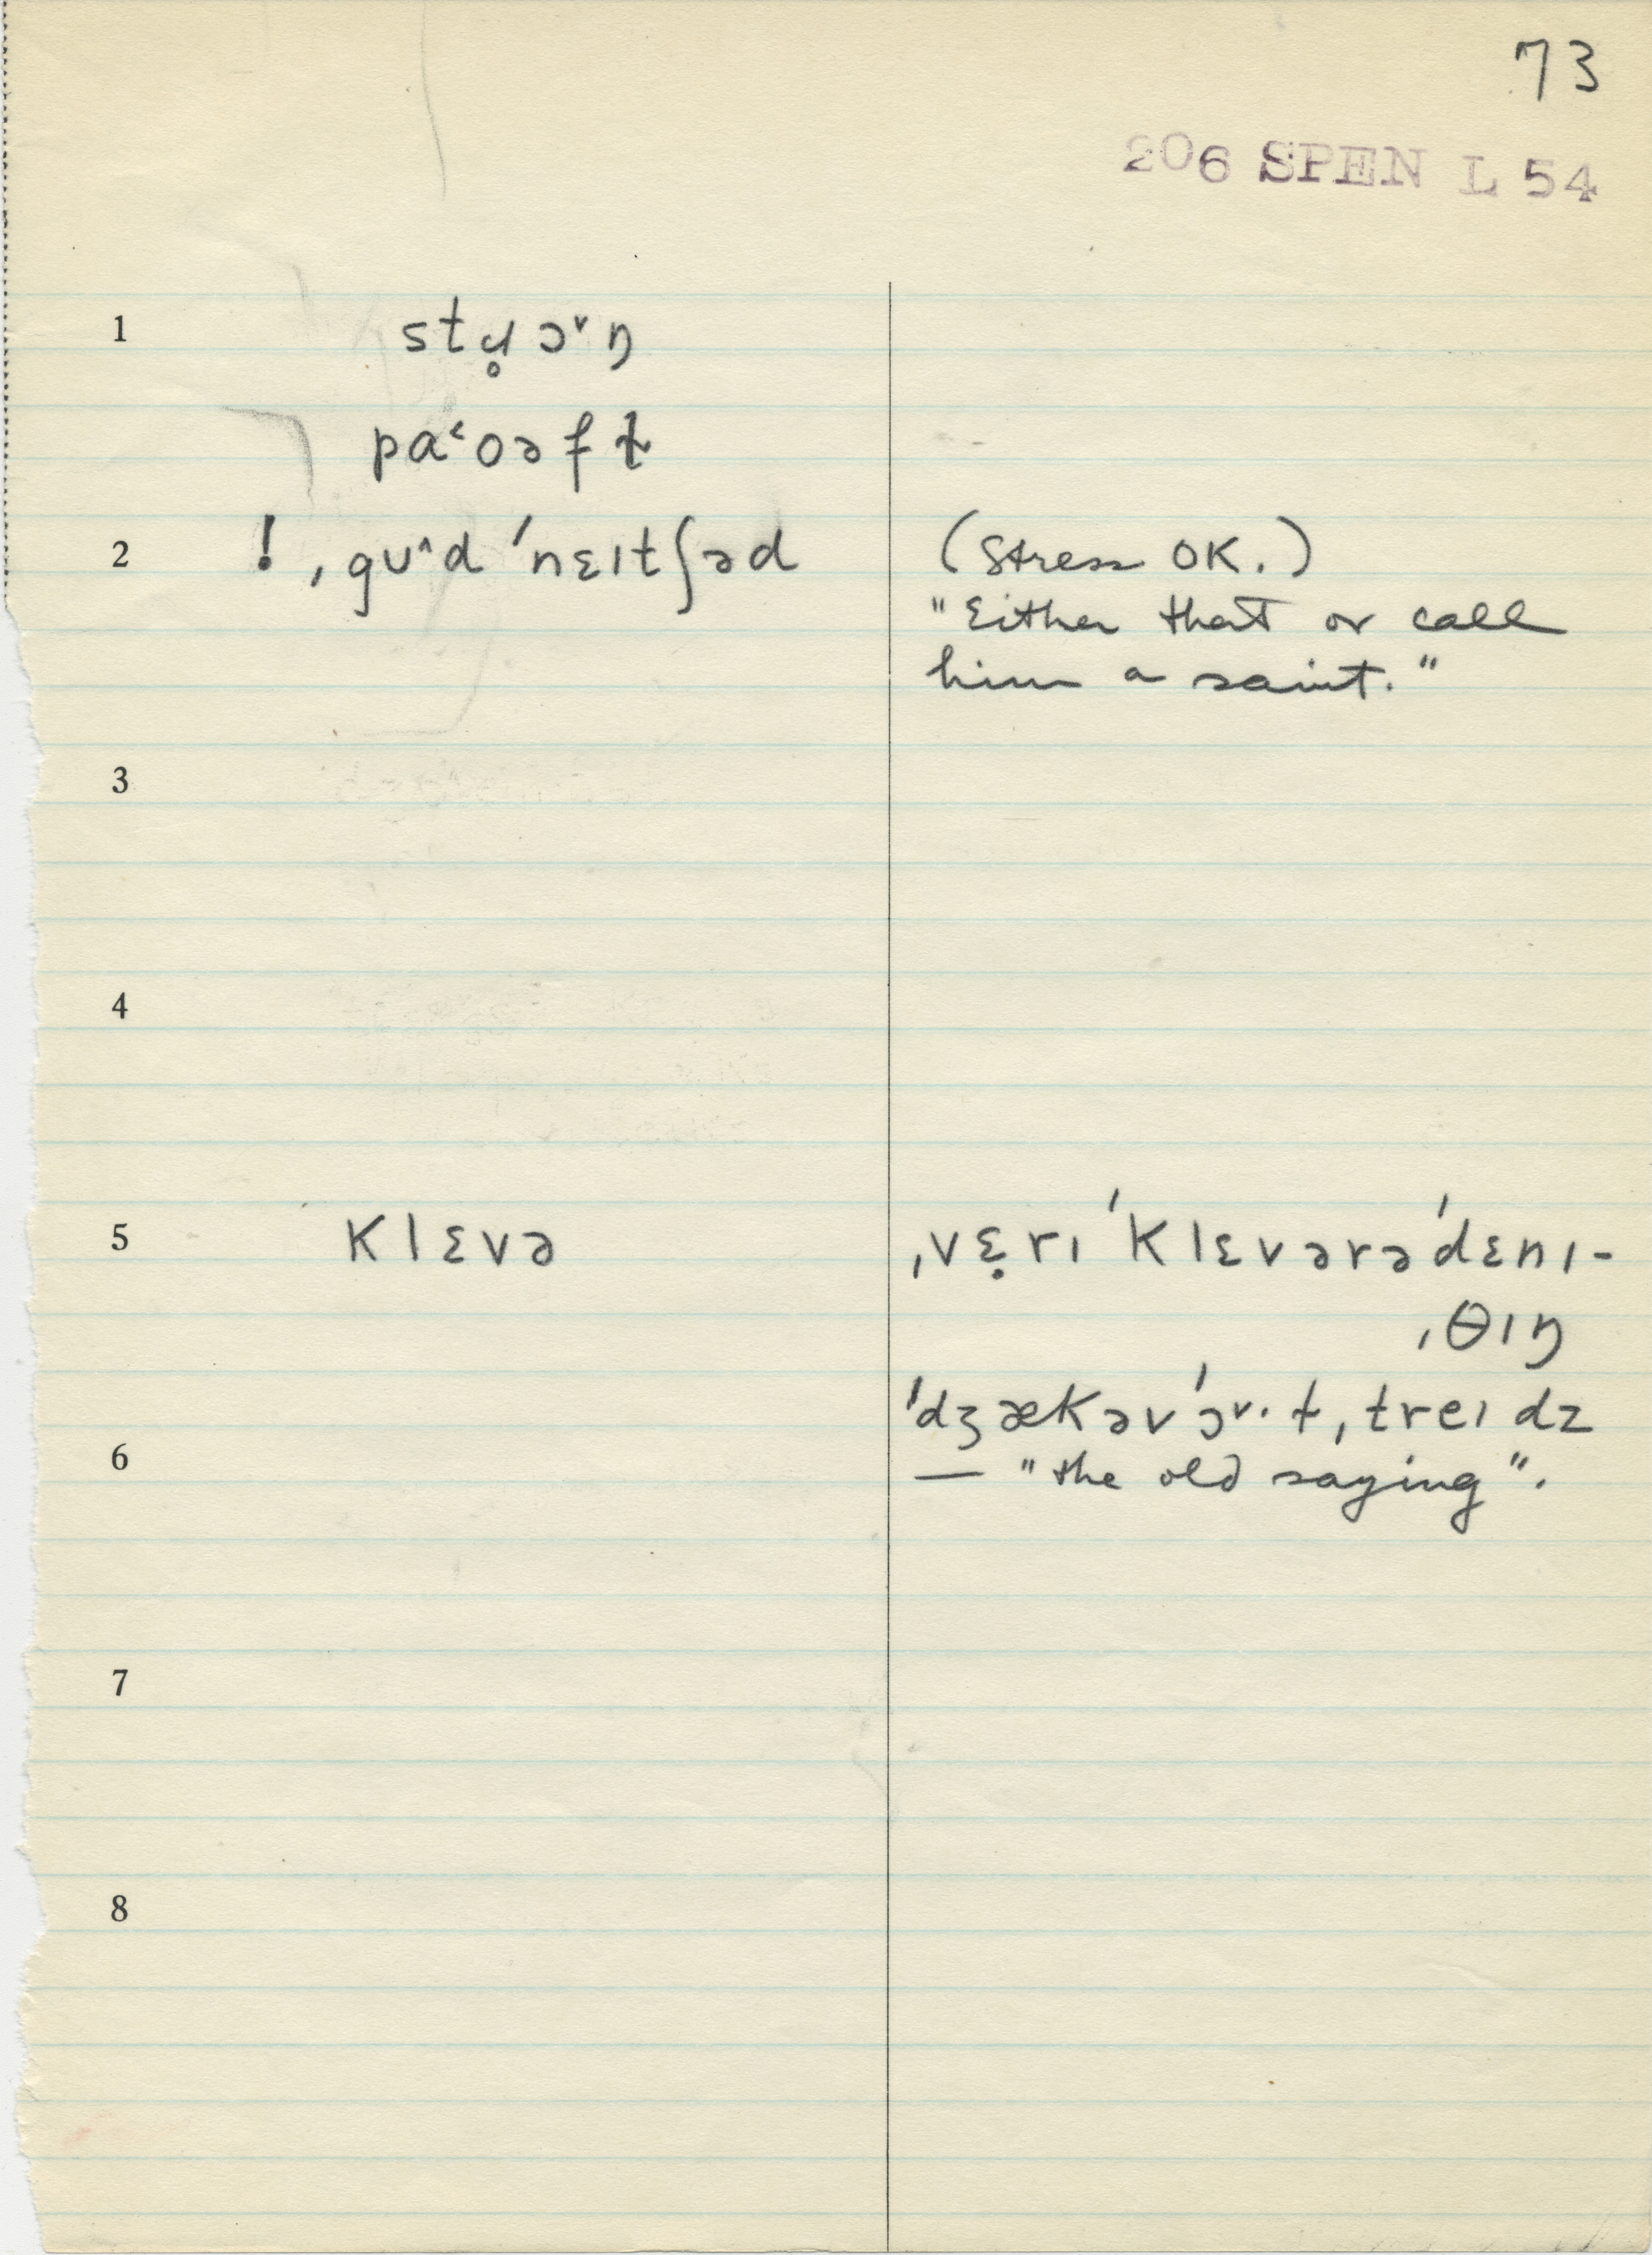 73
206 SPEN L 54
1 stɹ̥ɔ˅ŋ
paˁoəft
2 ! ˌgʊ˄d ˈnɛɪtʃəd (Stress OK.)
"Either that or call
him a saint."
3
4
5 klɛvə ˌvɛ̣rɪ ˈklɛvərəˈdɛnɪ-
ˌθɪŋ
ˈdʒækəvˈɔ˅·ɫˌtreɪdz
6 — "the old saying".
7
8